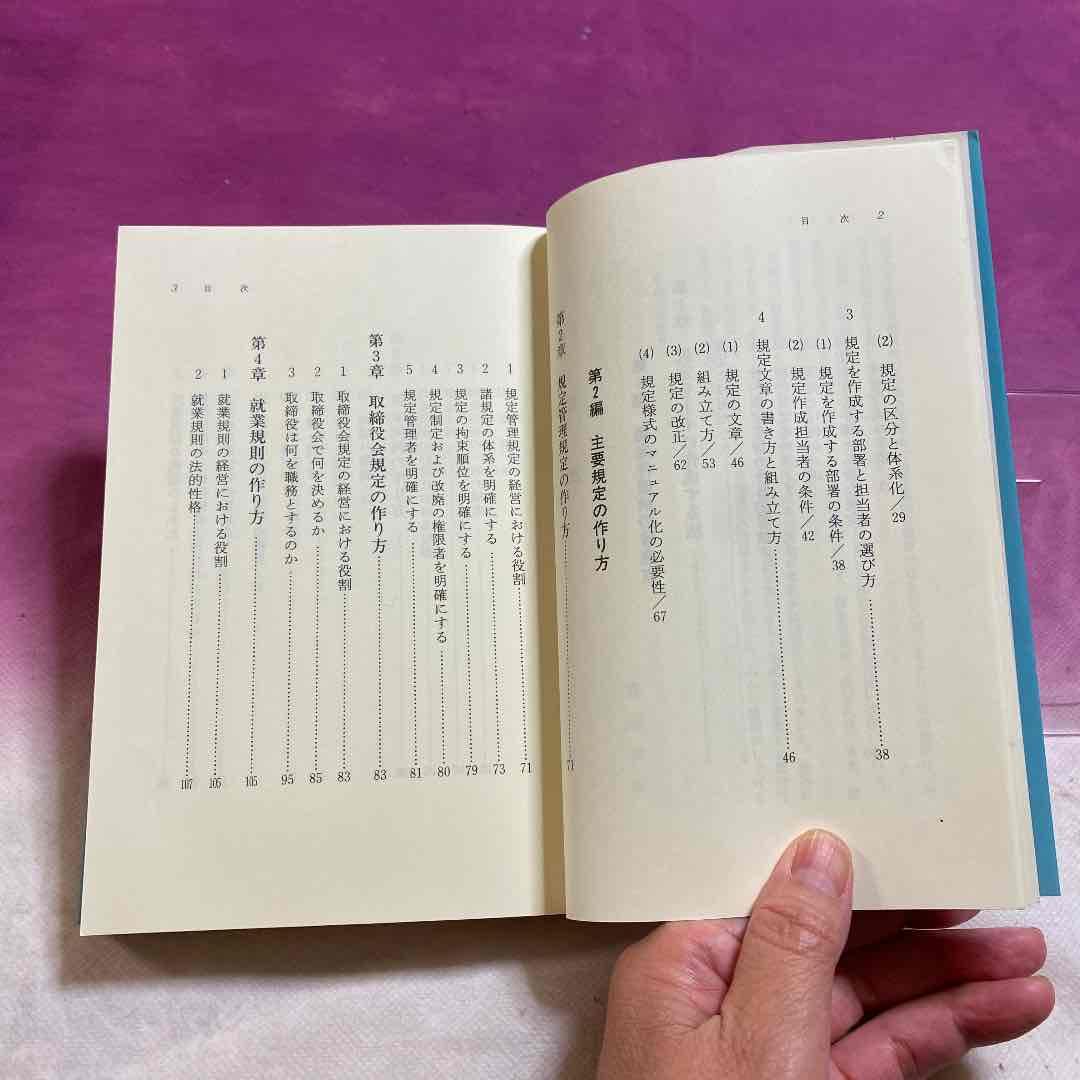 目次 2
(2) 規定の区分と体系化/29
3 規定を作成する部署と担当者の選び方……38
(1) 規定を作成する部署の条件/38
(2) 規定作成担当者の条件/42
4 規定文章の書き方と組み立て方……46
(1) 規定の文章/46
(2) 組み立て方/53
(3) 規定の改正/62
(4) 規定様式のマニュアル化の必要性/67
第2編 主要規定の作り方
第2章 規定管理規定の作り方……71
3 目次
1 規定管理規定の経営における役割……71
2 諸規定の体系を明確にする……73
3 規定の拘束順位を明確にする……79
4 規定制定および改廃の権限者を明確にする……80
5 規定管理者を明確にする……81
第3章 取締役会規定の作り方……83
1 取締役会規定の経営における役割……83
2 取締役会で何を決めるか……85
3 取締役は何を職務とするのか……95
第4章 就業規則の作り方……105
1 就業規則の経営における役割……105
2 就業規則の法的性格……107